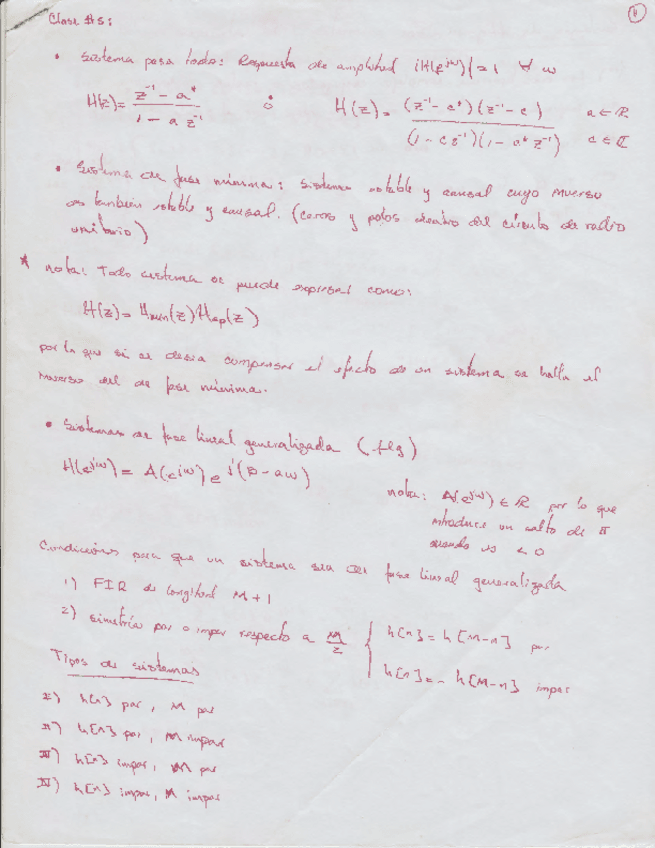 4
Clase #5:
• Sistema pasa todo: Respuesta de amplitud |H(e^{jω})| = 1 ∀ ω
H(z) = (z⁻¹ - a*) / (1 - a z⁻¹) ó H(z) = (z⁻¹ - c*)(z⁻¹ - c) / (1 - c z⁻¹)(1 - c* z⁻¹) a ∈ ℝ c ∈ ℂ
• Sistema de fase mínima: Sistema estable y causal cuyo inverso
es también estable y causal. (ceros y polos dentro del círculo de radio
unitario)
* nota: Todo sistema se puede expresar como:
H(z) = Hmin(z) Hap(z)
por lo que si se desea compensar el efecto de un sistema se halla el
inverso del de fase mínima.
• Sistemas de fase lineal generalizada (flg)
H(e^{jω}) = A(e^{jω}) e^{j(β - αω)}
nota: A(e^{jω}) ∈ ℝ por lo que
introduce un salto de π
cuando es < 0
Condiciones para que un sistema sea de fase lineal generalizada
1) FIR de longitud M+1
2) simetría par o impar respecto a M/2 { h[n] = h[M-n] par
h[n] = -h[M-n] impar
Tipos de sistemas
I) h[n] par, M par
II) h[n] par, M impar
III) h[n] impar, M par
IV) h[n] impar, M impar